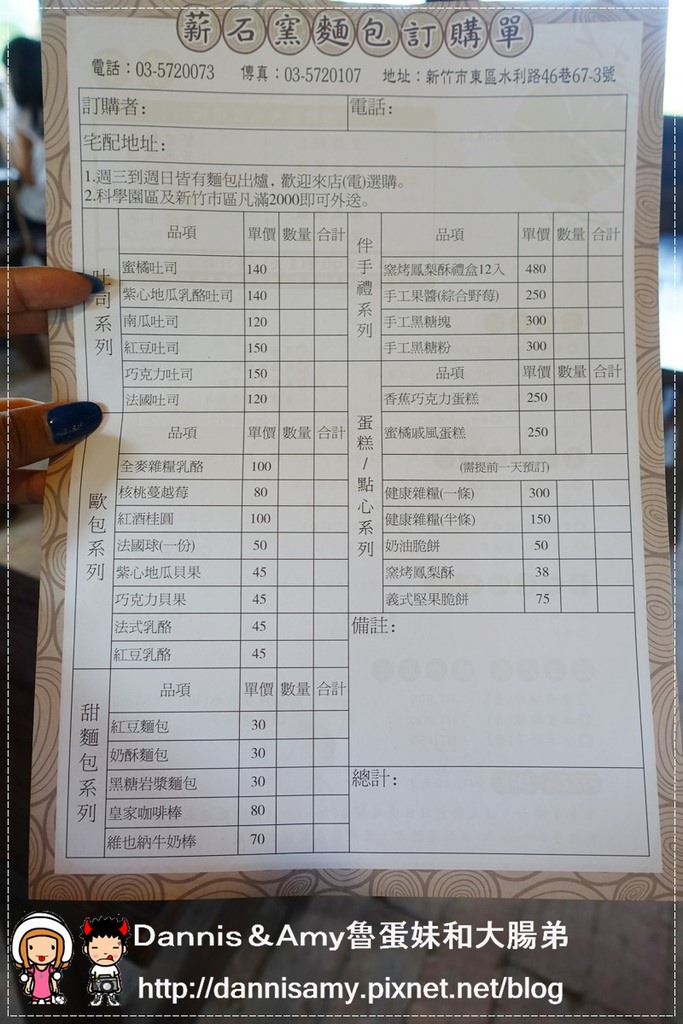 薪石窯麵包訂購單
電話：03-5720073 傳真：03-5720107 地址：新竹市東區水利路46巷67-3號
訂購者： 電話：
宅配地址：
1.週三到週日皆有麵包出爐，歡迎來店(電)選購。
2.科學園區及新竹市區凡滿2000即可外送。
吐司系列
品項 單價 數量 合計
蜜橘吐司 140
紫心地瓜乳酪吐司 140
南瓜吐司 120
紅豆吐司 150
巧克力吐司 150
法國吐司 120
歐包系列
品項 單價 數量 合計
全麥雜糧乳酪 100
核桃蔓越莓 80
紅酒桂圓 100
法國球(一份) 50
紫心地瓜貝果 45
巧克力貝果 45
法式乳酪 45
紅豆乳酪 45
甜麵包系列
品項 單價 數量 合計
紅豆麵包 30
奶酥麵包 30
黑糖岩漿麵包 30
皇家咖啡棒 80
維也納牛奶棒 70
伴手禮系列
品項 單價 數量 合計
窯烤鳳梨酥禮盒12入 480
手工果醬(綜合野莓) 250
手工黑糖塊 300
手工黑糖粉 300
蛋糕/點心系列
品項 單價 數量 合計
香蕉巧克力蛋糕 250
蜜橘戚風蛋糕 250
(需提前一天預訂)
健康雜糧(一條) 300
健康雜糧(半條) 150
奶油脆餅 50
窯烤鳳梨酥 38
義式堅果脆餅 75
備註：
總計：
Dannis＆Amy魯蛋妹和大腸弟
http://dannisamy.pixnet.net/blog